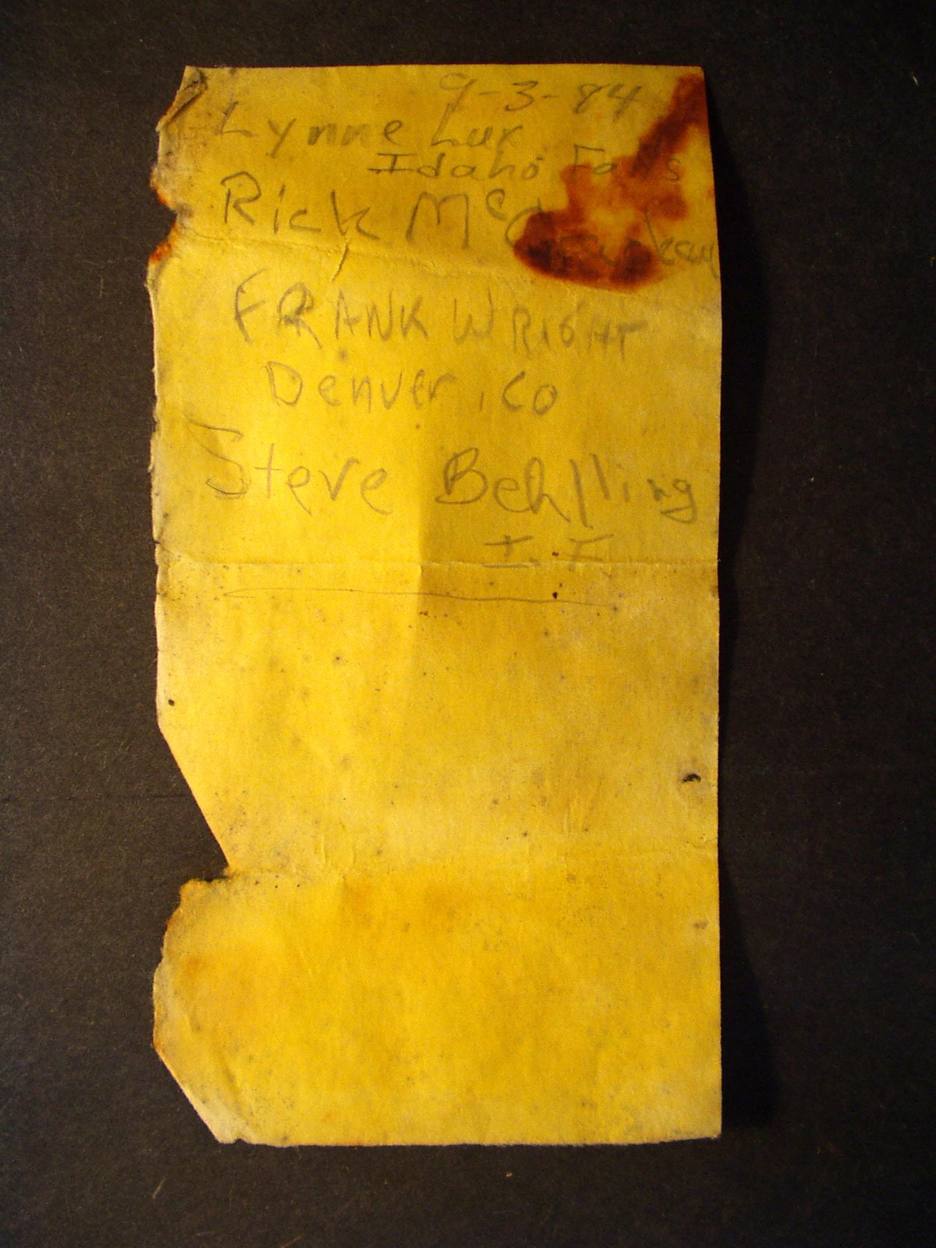 9-3-84
Lynne Lux
Idaho Falls
Rick
FRANK WRIGHT
Denver, Co
Steve Behlling
I.F.